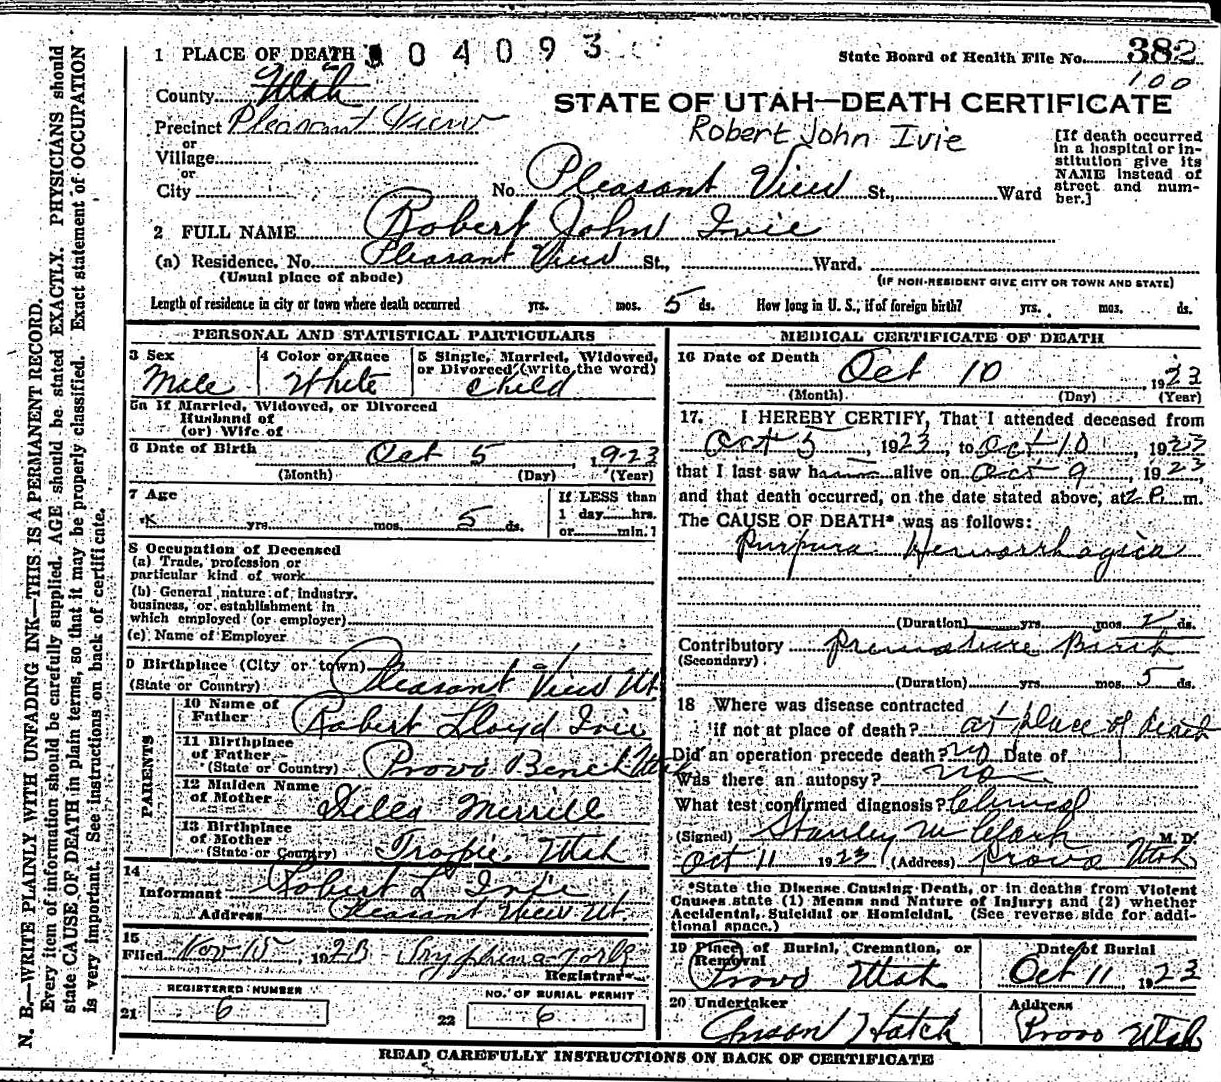 1 PLACE OF DEATH 04093
State Board of Health File No. 382
100
County Utah
STATE OF UTAH—DEATH CERTIFICATE
Precinct Pleasant View
Robert John Ivie
or
Village
or
City
No. Pleasant View St., Ward
[If death occurred
in a hospital or in-
stitution give its
NAME instead of
street and num-
ber.]
2 FULL NAME Robert John Ivie
(a) Residence. No. Pleasant View St., Ward.
(Usual place of abode)
(IF NON-RESIDENT GIVE CITY OR TOWN AND STATE)
Length of residence in city or town where death occurred yrs. mos. 5 ds. How long in U. S., if of foreign birth? yrs. mos. ds.
PERSONAL AND STATISTICAL PARTICULARS
3 Sex
Male
4 Color or Race
White
5 Single, Married, Widowed,
or Divorced (write the word)
child
5a If Married, Widowed, or Divorced
Husband of
(or) Wife of
6 Date of Birth Oct 5, 1923
(Month) (Day) (Year)
7 Age
yrs. mos. 5 ds.
If LESS than
1 day hrs.
or min.?
8 Occupation of Deceased
(a) Trade, profession or
particular kind of work
(b) General nature of industry,
business, or establishment in
which employed (or employer)
(c) Name of Employer
9 Birthplace (City or town)
(State or Country) Pleasant View Ut.
PARENTS
10 Name of
Father Robert Lloyd Ivie
11 Birthplace
of Father
(State or Country) Provo Bench Utah
12 Maiden Name
of Mother Della Merrill
13 Birthplace
of Mother
(State or Country) Tropic Utah
14
Informant Robert L Ivie
Address Pleasant View Ut.
15
Filed Nov 15, 1923
Registrar
REGISTERED NUMBER
21 6
NO. OF BURIAL PERMIT
22 6
MEDICAL CERTIFICATE OF DEATH
16 Date of Death Oct 10, 1923
(Month) (Day) (Year)
17. I HEREBY CERTIFY, That I attended deceased from
Oct 5, 1923, to Oct 10, 1923
that I last saw h alive on Oct 9, 1923,
and that death occurred, on the date stated above, at 2 P. m.
The CAUSE OF DEATH* was as follows:
Purpura Hemorrhagica
(Duration) yrs. mos. 2 ds.
Contributory Premature Birth
(Secondary)
(Duration) yrs. mos. 5 ds.
18 Where was disease contracted
if not at place of death? at place of death
Did an operation precede death? no Date of
Was there an autopsy? no
What test confirmed diagnosis? Clinical
(Signed) Stanley M Clark M. D.
Oct 11 1923 (Address) Provo Utah
*State the Disease Causing Death, or in deaths from Violent
Causes state (1) Means and Nature of Injury; and (2) whether
Accidental, Suicidal or Homicidal. (See reverse side for addi-
tional space.)
19 Place of Burial, Cremation, or
Removal
Provo Utah
Date of Burial
Oct 11 1923
20 Undertaker
Hatch
Address
Provo Utah
READ CAREFULLY INSTRUCTIONS ON BACK OF CERTIFICATE
N. B.—WRITE PLAINLY WITH UNFADING INK—THIS IS A PERMANENT RECORD.
Every item of information should be carefully supplied. AGE should be stated EXACTLY. PHYSICIANS should
state CAUSE OF DEATH in plain terms, so that it may be properly classified. Exact statement of OCCUPATION
is very important. See instructions on back of certificate.